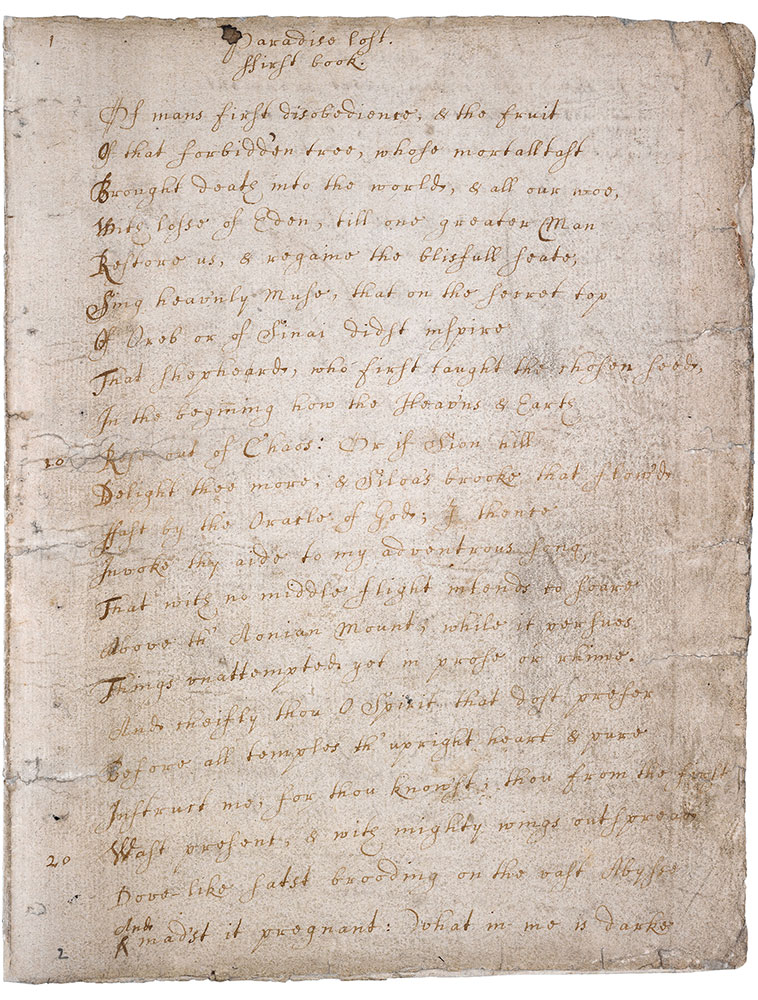 1 Paradise lost.
ffirst book.
Of mans first disobedience, & the fruit
Of that forbidd'en tree, whose mortall tast
Brought death into the world, & all our woe,
With losse of Eden, till one greater Man
Restore us, & regaine the blisfull seate,
Sing heav'nly Muse, that on the secret top
Of Oreb or of Sinai didst inspire
That shepheard, who first taught the chosen seed,
In the beginning how the Heav'ns & Earth
10 Rose out of Chaos: Or if Sion hill
Delight thee more, & Siloa's brooke that flow'd
ffast by the Oracle of God; I thence
Invoke thy aide to my adventrous song,
That with no middle flight intends to soare
Above th' Aonian Mount, while it persues
Things unattempted yet in prose or rhime.
And cheifly thou O Spirit that dost prefer
Before all temples th' upright heart & pure
Instruct me, for thou know'st; thou from the first
20 Wast present, & with mighty wings outspread
Dove-like satst brooding on the vast Abysse
And
& mad'st it pregnant: What in me is darke
2